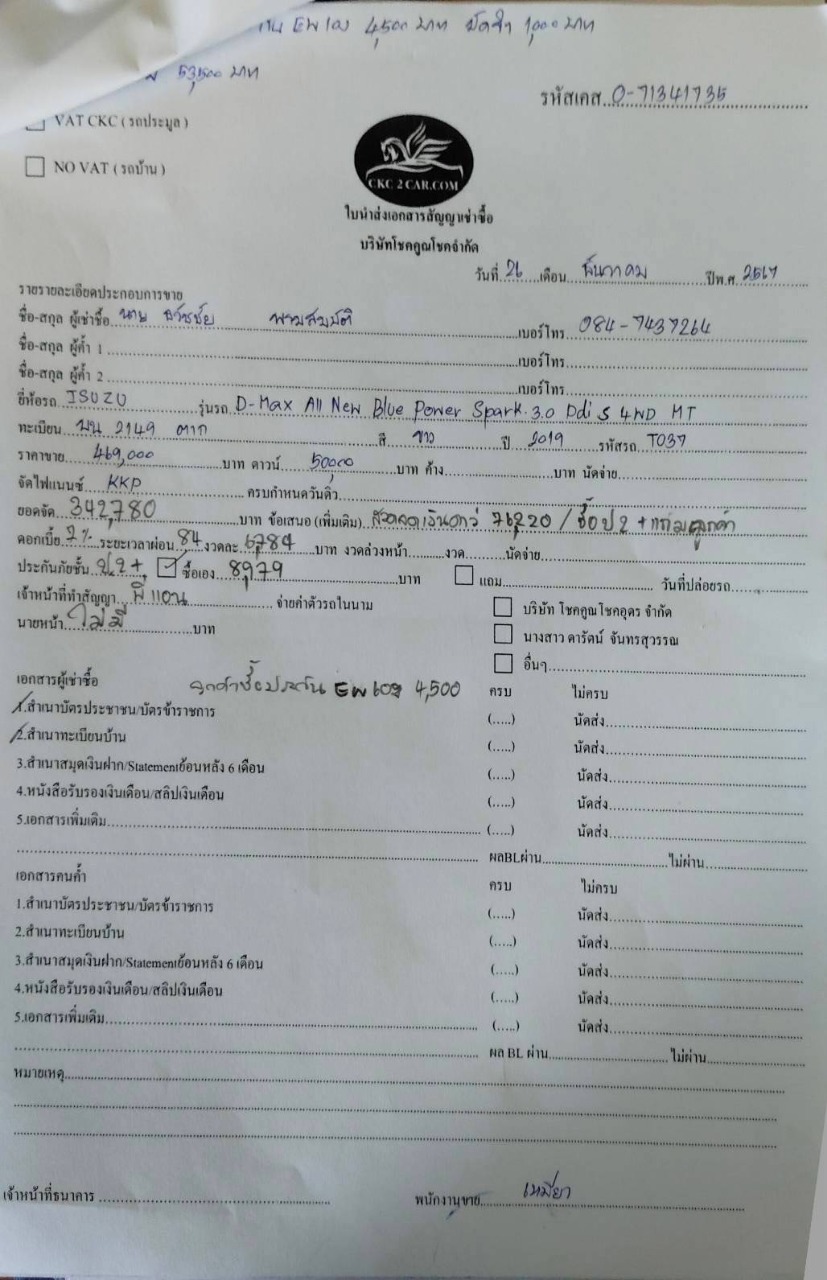 EW เอง 4,500 บาท มัดจำ 1,000 บาท
53,500 บาท
รหัสเคส 0-71341735
VAT CKC ( รถประมูล )
NO VAT ( รถบ้าน )
CKC 2 CAR.COM
ใบนำส่งเอกสารสัญญาเช่าซื้อ
บริษัทโชคคูณโชคจำกัด
วันที่ 26 เดือน ปีพ.ศ. 2567
รายรายละเอียดประกอบการขาย
ชื่อ-สกุล ผู้เช่าซื้อ นาย ธวัชชัย พรมสมบัติ เบอร์โทร 084-7437264
ชื่อ-สกุล ผู้ค้ำ 1 เบอร์โทร
ชื่อ-สกุล ผู้ค้ำ 2 เบอร์โทร
ยี่ห้อรถ ISUZU รุ่นรถ D-Max All New Blue Power Spark 3.0 Ddi S 4WD MT
ทะเบียน 2149 ตาก สี ขาว ปี 2019 รหัสรถ T037
ราคาขาย 469,000 บาท ดาวน์ 50,000 บาท ค้าง บาท นัดจ่าย
จัดไฟแนนซ์ KKP ครบกำหนดวันติ๋ว
ยอดจัด 342,780 บาท ข้อเสนอ (เพิ่มเติม) 76,220 / ซื้อ ป 2 +
ดอกเบี้ย 7% ระยะเวลาผ่อน 84 งวดละ 6,784 บาท งวดล่วงหน้า งวด นัดจ่าย
ประกันภัยชั้น 2+ ซื้อเอง 8,979 บาท แถม วันที่ปล่อยรถ
เจ้าหน้าที่ทำสัญญา พี่แอน จ่ายค่าตัวรถในนาม
บริษัท โชคคูณโชคอุดร จำกัด
นายหน้า ไม่มี บาท
นางสาว ดารัตน์ จันทรสุวรรณ
อื่นๆ
เอกสารผู้เช่าซื้อ ลูกค้าซื้อประกัน EW เอง 4,500 ครบ ไม่ครบ
1.สำเนาบัตรประชาชน/บัตรข้าราชการ (.....) นัดส่ง
2.สำเนาทะเบียนบ้าน (.....) นัดส่ง
3.สำเนาสมุดเงินฝาก/Statementย้อนหลัง 6 เดือน (.....) นัดส่ง
4.หนังสือรับรองเงินเดือน/สลิปเงินเดือน (.....) นัดส่ง
5.เอกสารเพิ่มเติม (.....) นัดส่ง
ผลBLผ่าน ไม่ผ่าน
เอกสารคนค้ำ ครบ ไม่ครบ
1.สำเนาบัตรประชาชน/บัตรข้าราชการ (.....) นัดส่ง
2.สำเนาทะเบียนบ้าน (.....) นัดส่ง
3.สำเนาสมุดเงินฝาก/Statementย้อนหลัง 6 เดือน (.....) นัดส่ง
4.หนังสือรับรองเงินเดือน/สลิปเงินเดือน (.....) นัดส่ง
5.เอกสารเพิ่มเติม (.....) นัดส่ง
ผล BL ผ่าน ไม่ผ่าน
หมายเหตุ
เจ้าหน้าที่ธนาคาร พนักงานขาย เหมียว